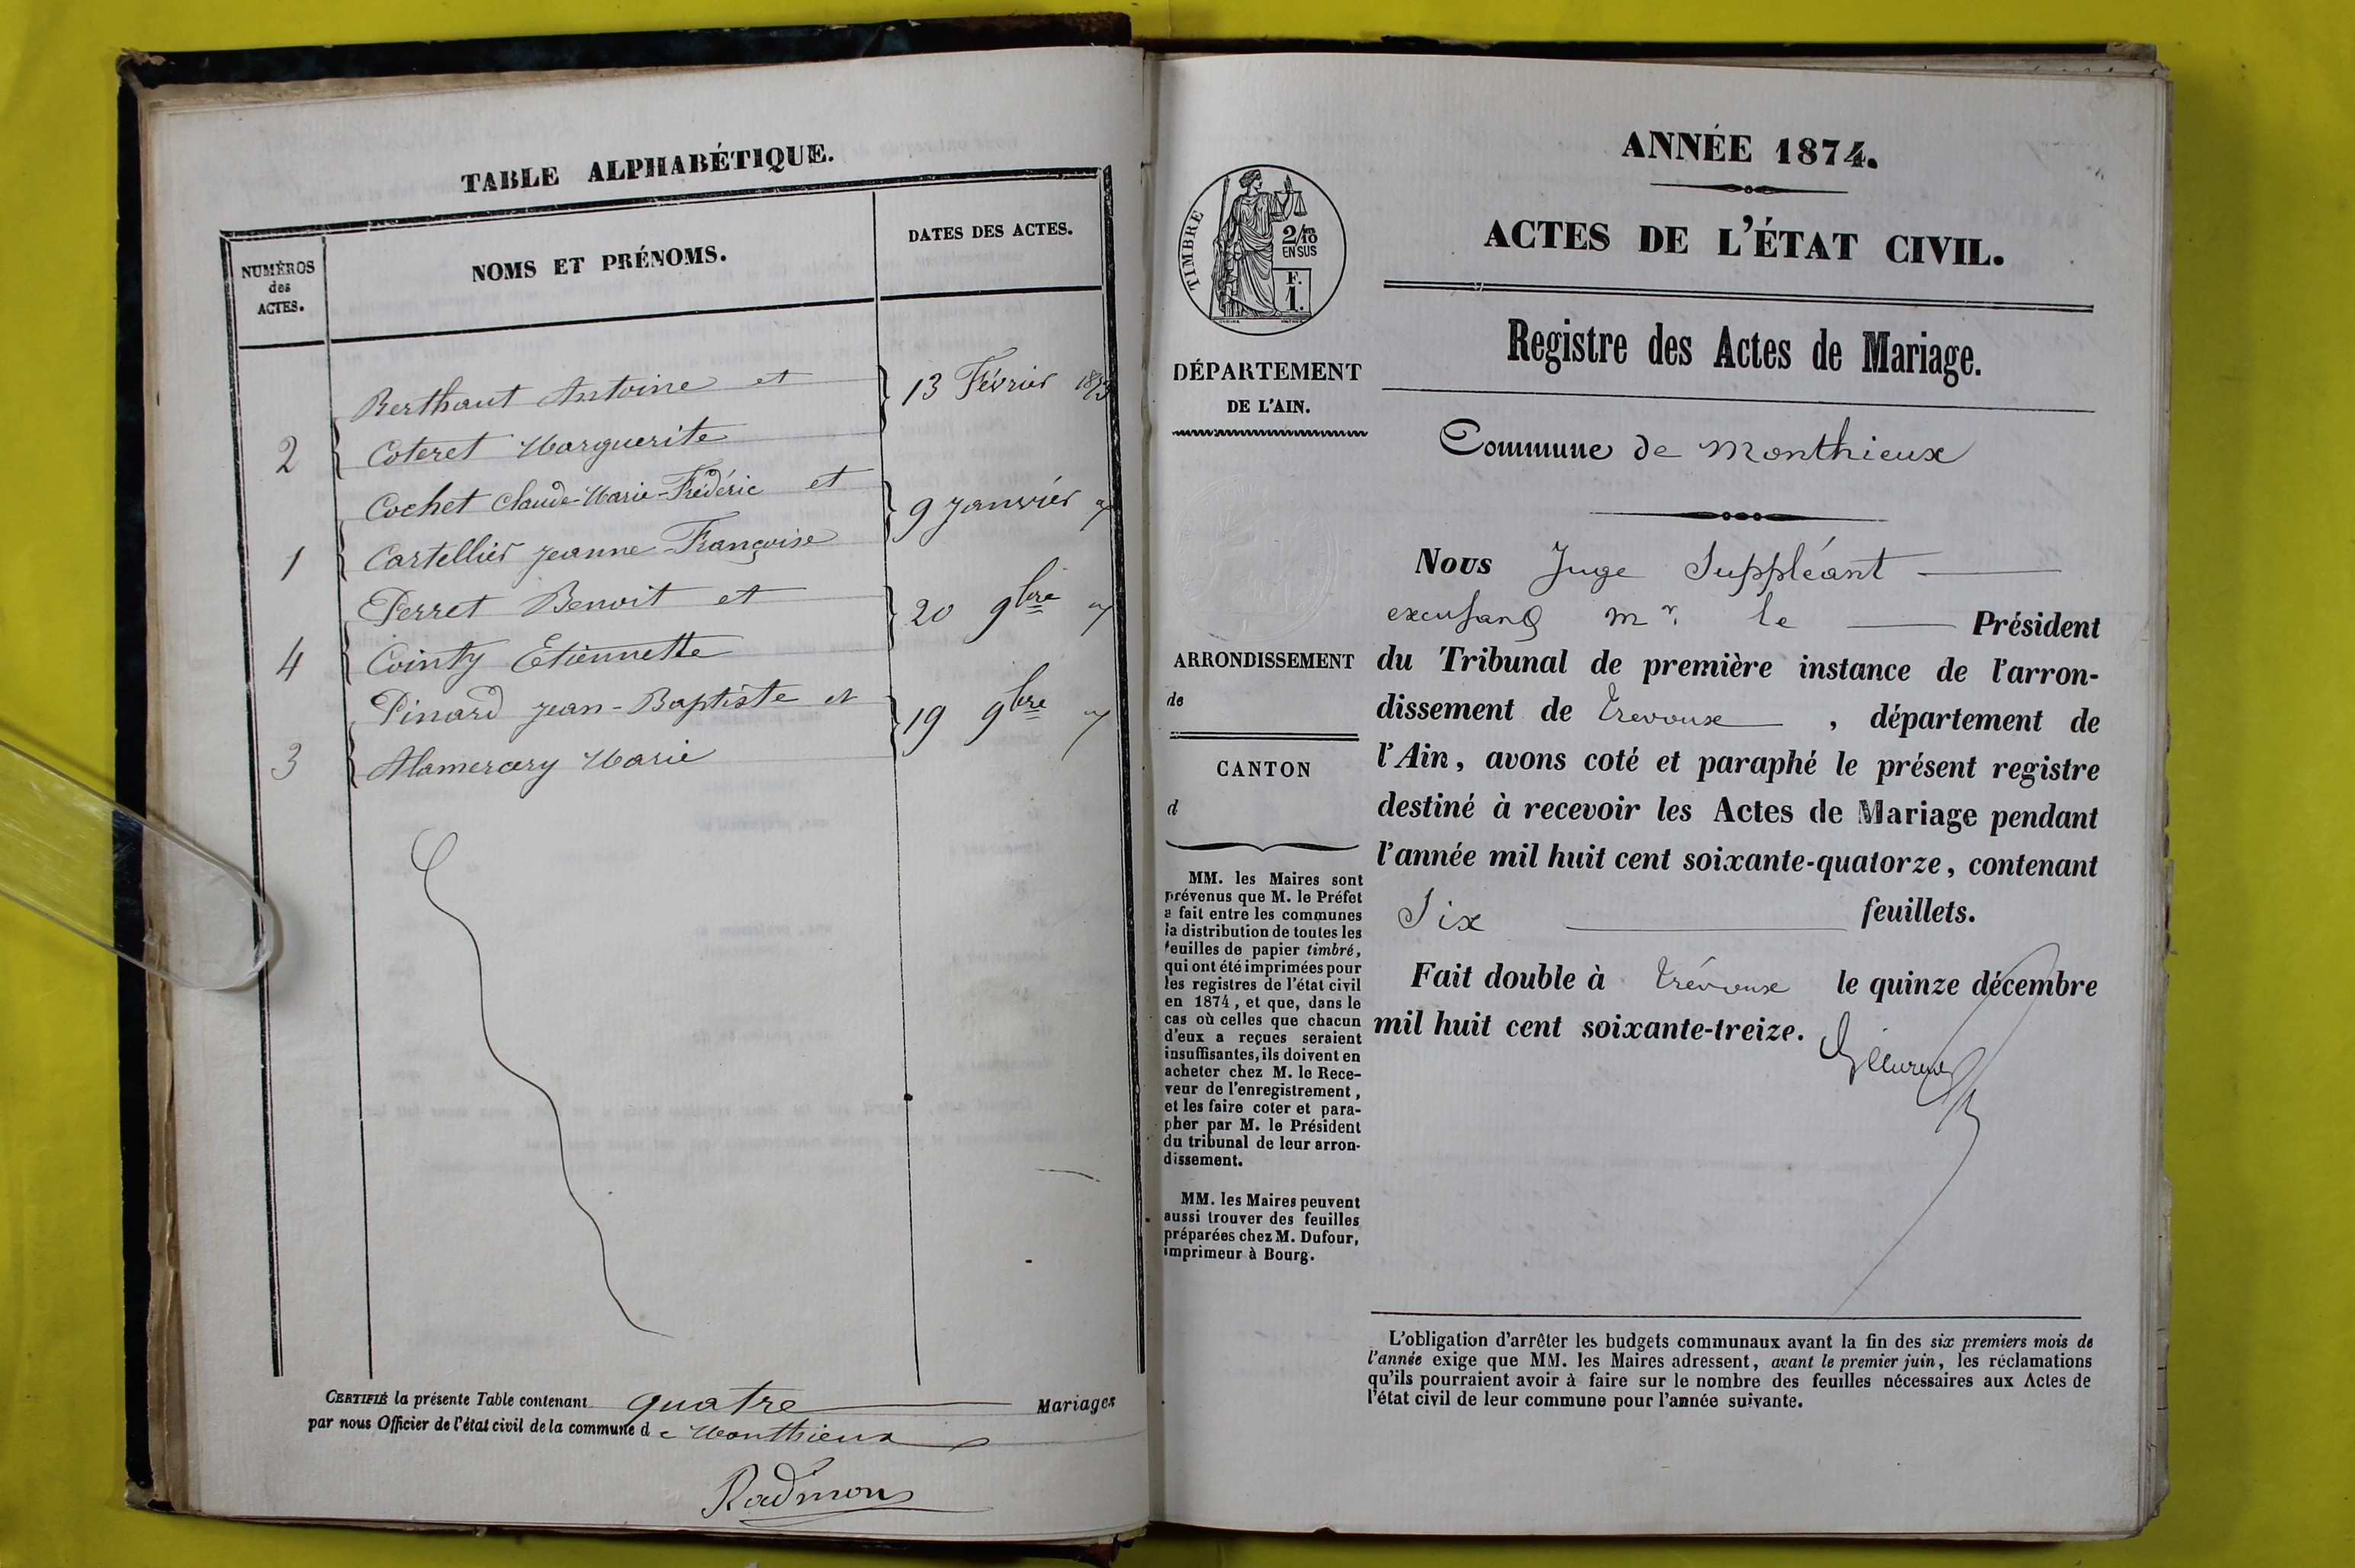 TABLE ALPHABÉTIQUE.
NUMÉROS
des
ACTES.
NOMS ET PRÉNOMS.
DATES DES ACTES.
Berthaut Antoine et
13 Février 1873
2
Coteret Marguerite
Cochet Claude-Marie-Frédéric et
9 Janvier "
1
Cartellier Jeanne-Françoise
Perret Benoit et
20 9bre "
4
Cointy Etiennette
Pinard Jean-Baptiste et
19 9bre "
3
Alamercery Marie
CERTIFIÉ la présente Table contenant quatre Mariages
par nous Officier de l'état civil de la commune de Monthieux
Radmon
ANNÉE 1874.
ACTES DE L'ÉTAT CIVIL.
Registre des Actes de Mariage.
Commune de Monthieux
TIMBRE
2/10
EN SUS
F.
1.
DÉPARTEMENT
DE L'AIN.
ARRONDISSEMENT
de
CANTON
d
MM. les Maires sont
prévenus que M. le Préfet
a fait entre les communes
la distribution de toutes les
feuilles de papier timbré,
qui ont été imprimées pour
les registres de l'état civil
en 1874, et que, dans le
cas où celles que chacun
d'eux a reçues seraient
insuffisantes, ils doivent en
acheter chez M. le Rece-
veur de l'enregistrement,
et les faire coter et para-
pher par M. le Président
du tribunal de leur arron-
dissement.
MM. les Maires peuvent
aussi trouver des feuilles
préparées chez M. Dufour,
imprimeur à Bourg.
Nous Juge Suppléant
excusant Mr. le Président
du Tribunal de première instance de l'arron-
dissement de Trevoux , département de
l'Ain, avons coté et paraphé le présent registre
destiné à recevoir les Actes de Mariage pendant
l'année mil huit cent soixante-quatorze, contenant
Six feuillets.
Fait double à Trévoux le quinze décembre
mil huit cent soixante-treize.
L'obligation d'arrêter les budgets communaux avant la fin des six premiers mois de
l'année exige que MM. les Maires adressent, avant le premier juin, les réclamations
qu'ils pourraient avoir à faire sur le nombre des feuilles nécessaires aux Actes de
l'état civil de leur commune pour l'année suivante.